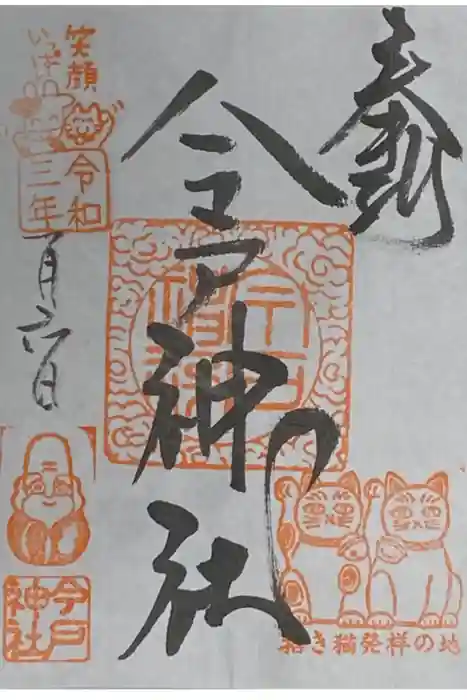 奉拝
今戸神社
笑顔
いっぱい
令和
三年
一月六日
今戸
神社
招き猫発祥の地